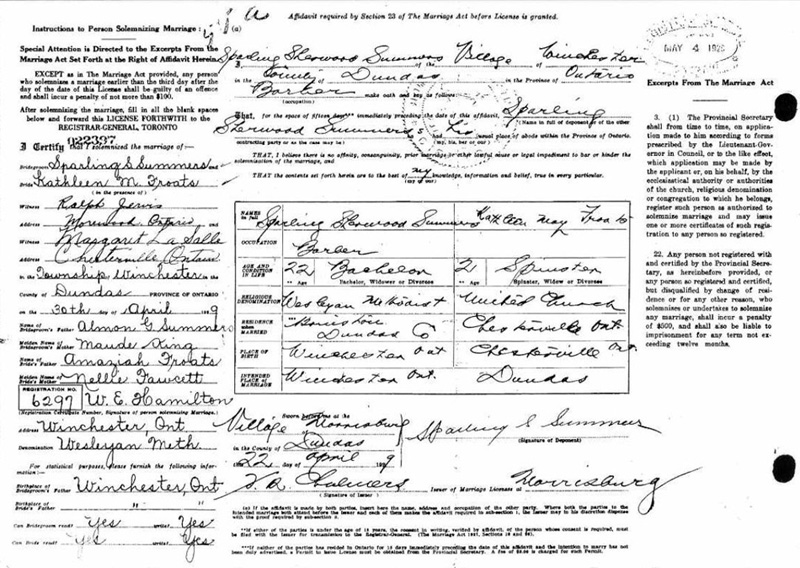 Affidavit required by Section 23 of The Marriage Act before License is granted.
Instructions to Person Solemnizing Marriage:
Special Attention is Directed to the Excerpts From the
Marriage Act Set Forth at the Right of Affidavit Herein
EXCEPT as in The Marriage Act provided, any person
who solemnizes a marriage earlier than the third day after the
day of the date of this License shall be guilty of an offence
and shall incur a penalty of not more than $100.
After solemnizing the marriage, fill in all the blank spaces
below and forward this LICENSE FORTHWITH to the
REGISTRAR-GENERAL, TORONTO
022337
I Certify that I solemnized the marriage of:
Bridegroom Sparling S Summers and
Kathleen M. Froats
(in the presence of)
Witness Ralph Jarvis
Address Morewood Ontario
Witness Margaret La Salle
Address Chesterville Ontario
in the Township Winchester in the
County of Dundas PROVINCE OF ONTARIO
on the 30th day of April 1929
Name of Bridegroom's Father Almon G Summers
Maiden Name of Bridegroom's Mother Maude King
Name of Bride's Father Amaziah Froats
Maiden Name of Bride's Mother Nellie Fawcett
REGISTRATION NO.
6297 W. E. Hamilton
(Registration Certificate Number, Signature of person solemnizing Marriage).
Address Winchester, Ont
Denomination Wesleyan Meth.
For statistical purposes, please furnish the following information:—
Birthplace of Bridegroom's Father Winchester, Ont
Birthplace of Bride's Father " "
Can Bridegroom read? Yes write? Yes
Can Bride read? Yes write? Yes
(a)
I, Sparling Sherwood Summers of the Village Winchester
in the County Dundas in the Province of Ontario
Barber make oath and say as follows:
(occupation)
That, for the space of fifteen days immediately preceding the date of this affidavit, Sparling
(Name in full of deponent or of the other
Sherwood Summers his usual place of abode within the Province of Ontario.
contracting party or as the case may be) (my, his, her or our)
THAT, I believe there is no affinity, consanguinity, prior marriage or other lawful cause or legal impediment to bar or hinder the
solemnization of the marriage, and
THAT the contents set forth herein are to the best of my knowledge, information and belief, true in every particular.
(my or our)
NAMES in full Sparling Sherwood Summers Kathleen May Froats
OCCUPATION Barber
AGE AND CONDITION IN LIFE 22 Bachelor 21 Spinster
Age Bachelor, Widower or Divorcee Age Spinster, Widow or Divorcee
RELIGIOUS DENOMINATION Wesleyan Methodist United Church
RESIDENCE when MARRIED Dundas Co Chesterville Ont
PLACE OF BIRTH Winchester Ont Chesterville Ont
INTENDED PLACE OF MARRIAGE Winchester Ont. Dundas
Sworn before me at the
Village Morrisburg
in the County of Dundas
22 day of April 1929
Sparling S Summers
(Signature of Deponent)
Chalmers
(Signature of Issuer)
Issuer of Marriage Licenses at Morrisburg
(a) If the affidavit is made by both parties, insert here the name, address and occupation of the other party.
MAY 4 1929
Excerpts From The Marriage Act
3. (1) The Provincial Secretary
shall from time to time, on application
made to him according to forms
prescribed by the Lieutenant-Governor
in Council, or to the like effect,
which application may be made by
the applicant or, on his behalf, by the
ecclesiastical authority or authorities
of the church, religious denomination
or congregation to which he belongs,
register such person as authorized to
solemnize marriage and may issue
one or more certificates of such registration
to any person so registered.
22. Any person not registered with
and certified by the Provincial Secretary,
as hereinbefore provided, or
any person so registered and certified,
but disqualified by change of residence
or for any other reason, who
solemnizes or undertakes to solemnize
any marriage, shall incur a penalty
of $500, and shall also be liable to
imprisonment for any term not exceeding
twelve months.